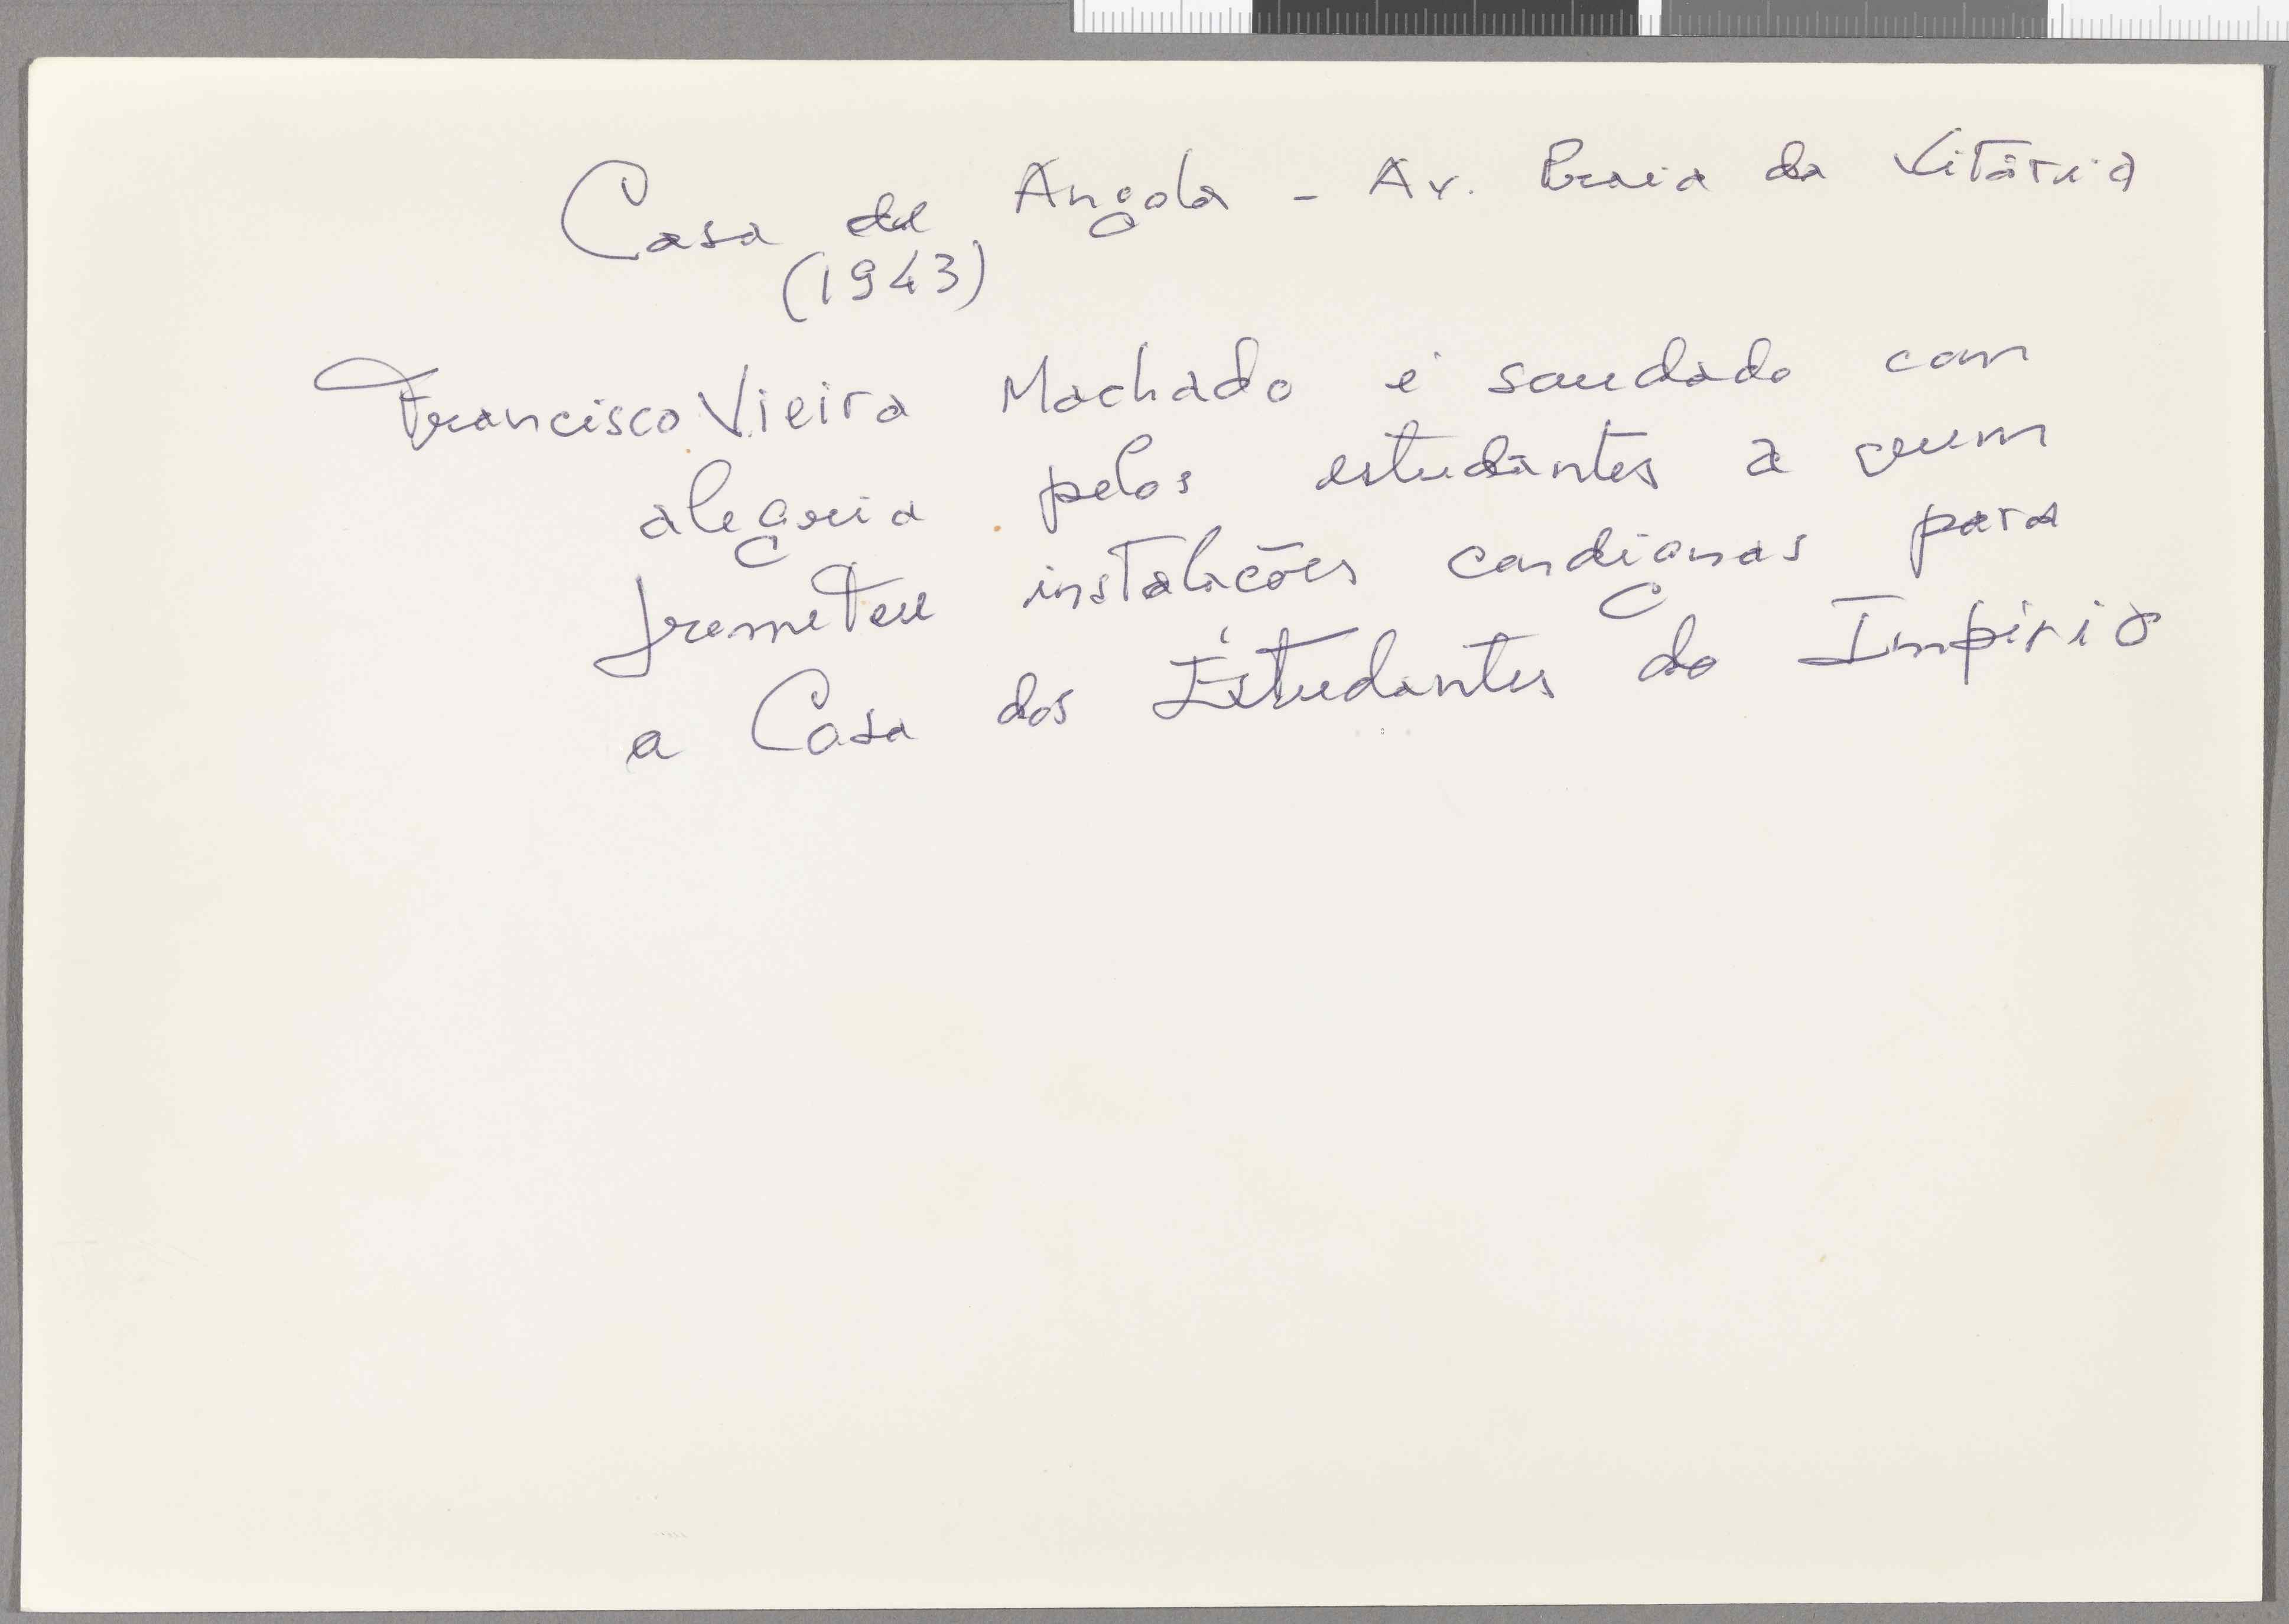 Casa de Angola - Av. Praia da Vitória
(1943)
Francisco Vieira Machado é saudado com
alegria pelos estudantes a quem
prometeu instalações condignas para
a Casa dos Estudantes do Império